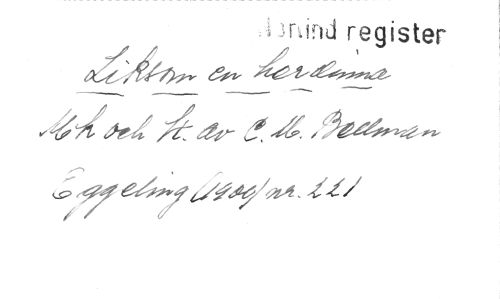 register
Liksom en herdinna
Mk och t. av C. M. Bellman
Eggeling (1900) nr. 221